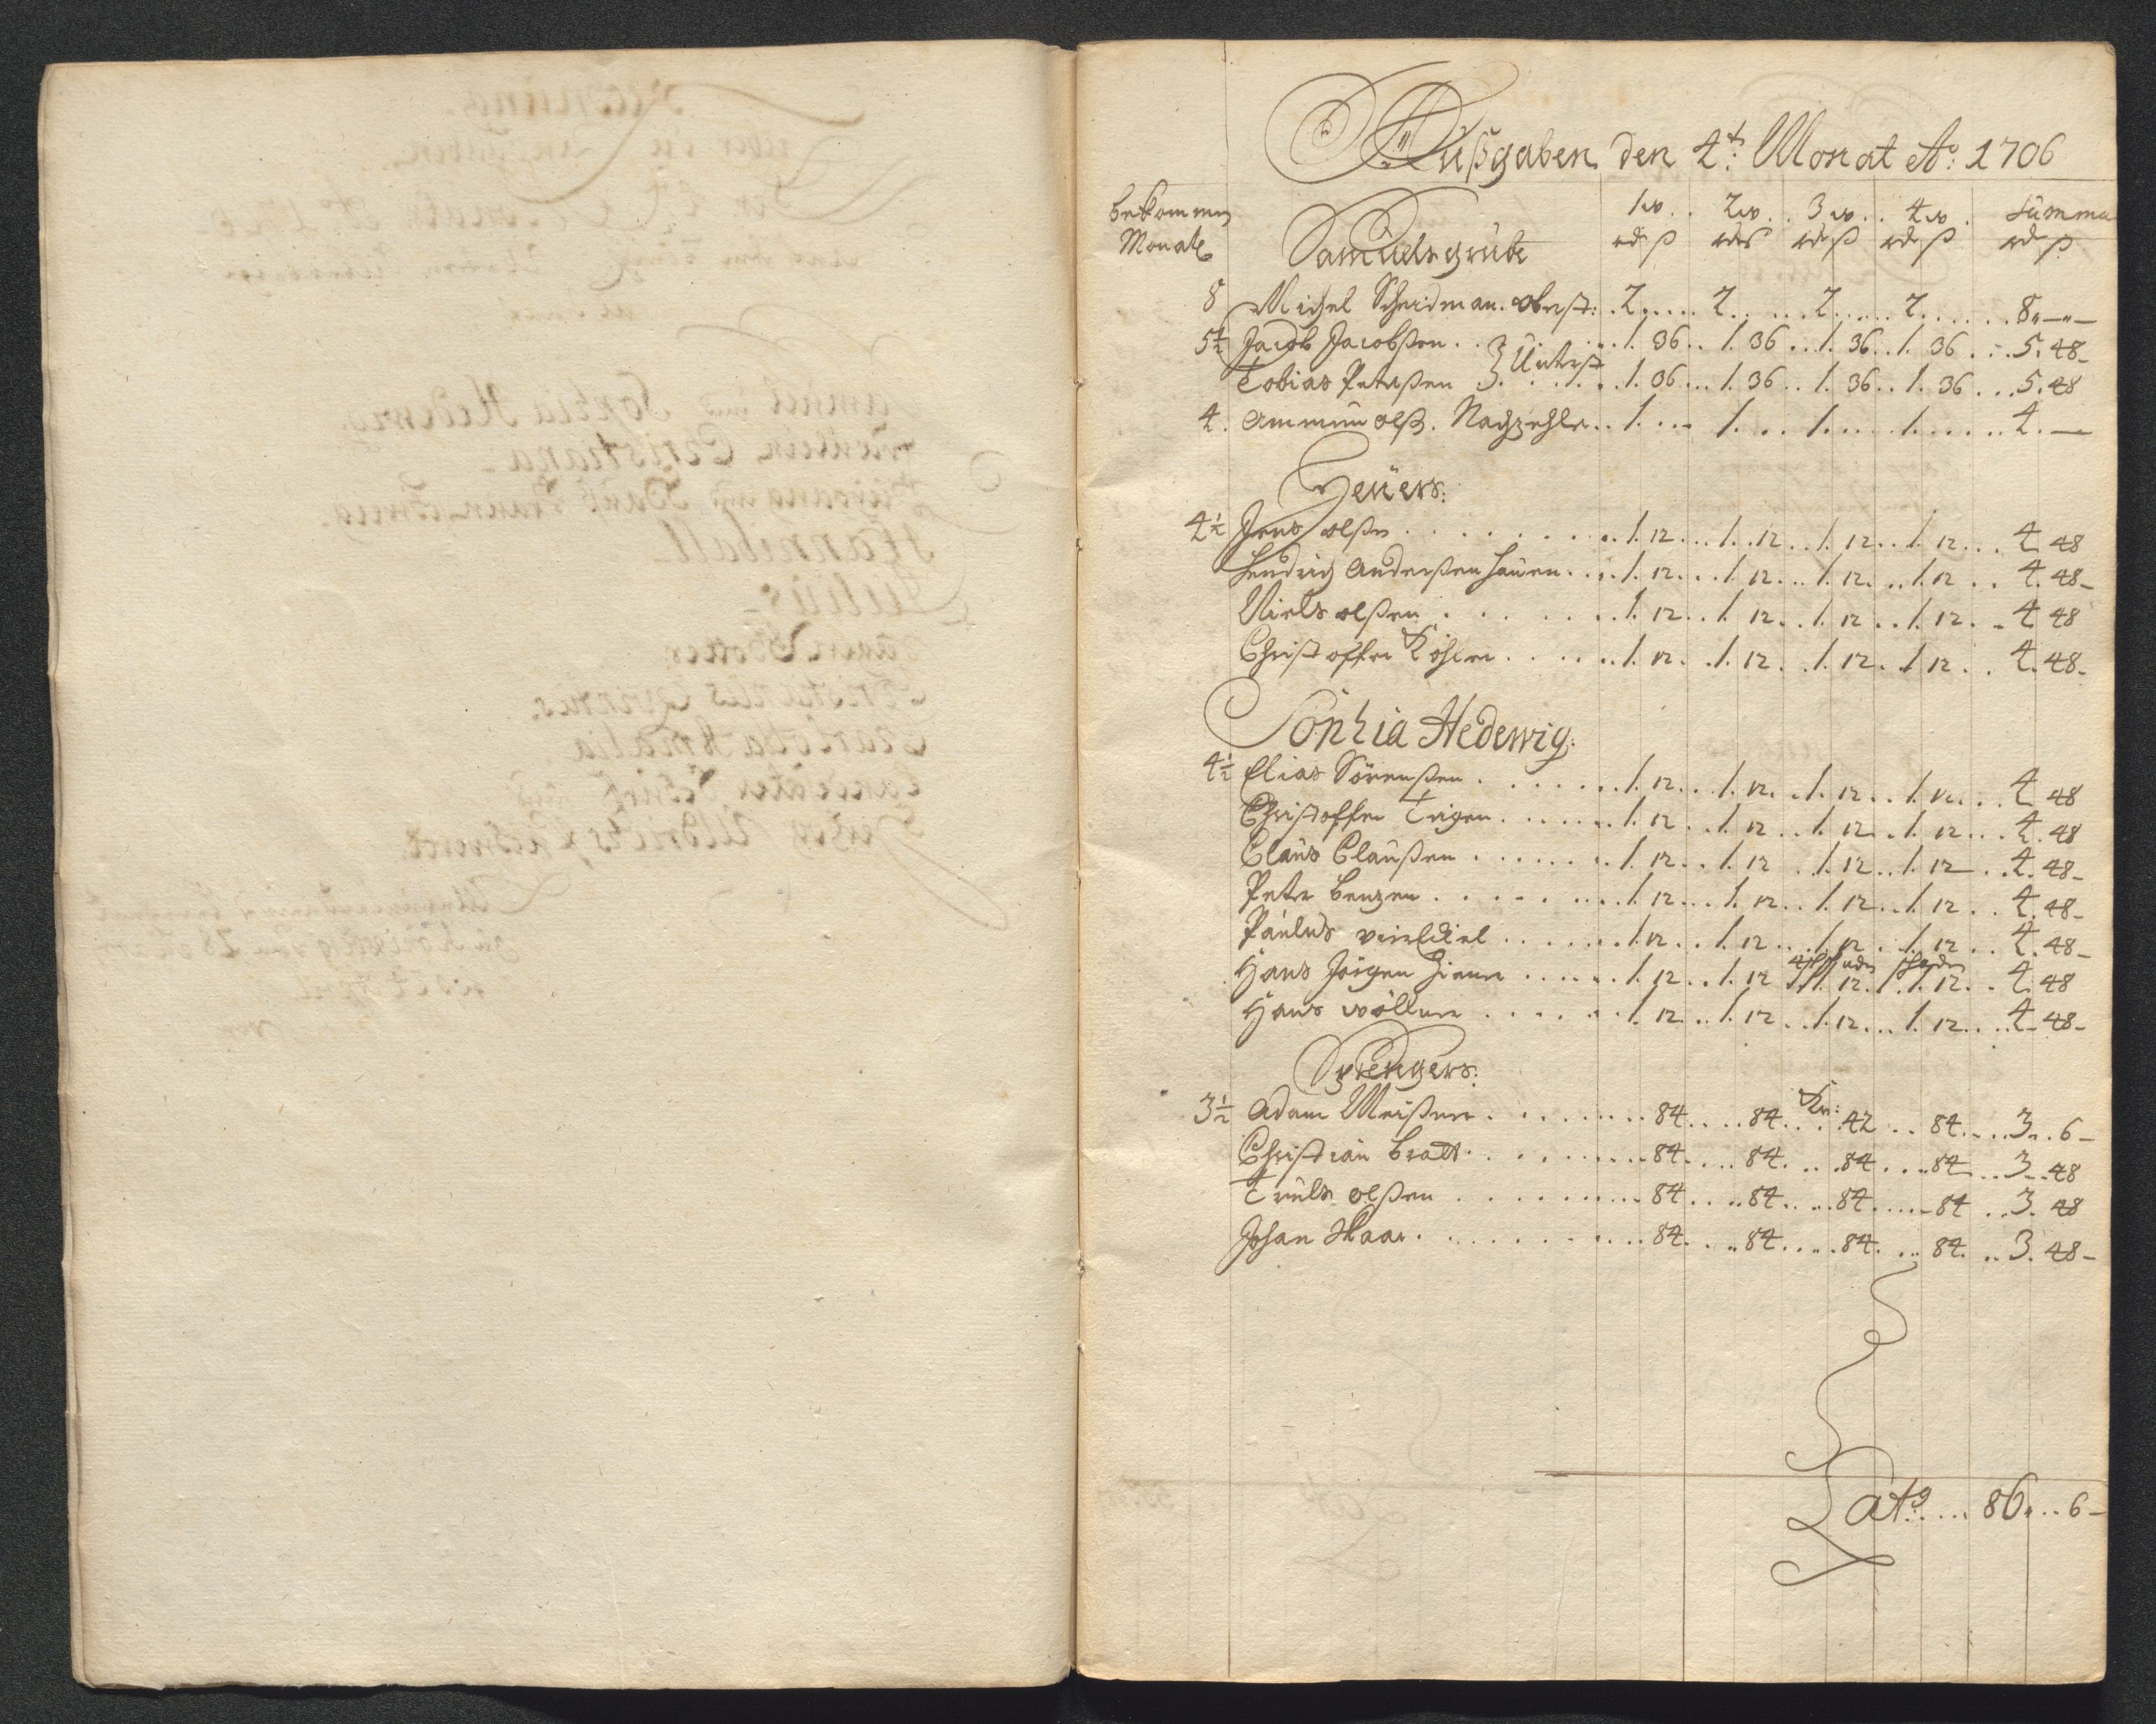 Außgaben den 4t: Monat Ao: 1706
bekommen Monatl
1w. 2w. 3w. 4w. Summa
rd ß rd ß rd ß rd ß rd ß
Samuelsgrube
8 Michel Scheidman. oberst: 2 2 2 2 8 " — " —
5½ Jacob Jacobßen 1. 36 1. 36 1. 36 1. 36 5. 48 -
Tobias Petterßen } Unterst 1. 36 1. 36 1. 36 1. 36 5. 48
4. Ammun Olß. Nachzehler 1. 1. 1. 1. 4. —
Heüers:
4½ Jens olßen 1. 12 1. 12 1. 12 1. 12 4 48
Hendrich Anderßen Hauen 1. 12 1. 12 1. 12 1. 12 4. 48 -
Niels olßen 1. 12 1. 12 1. 12 1. 12 4 48
Christoffer Köhler 1. 12 1. 12 1. 12 1 12 4. 48 -
Sophia Hedewig:
4½ Elias Sörenßen 1. 12 1. 12 1. 12 1. 12 4 48
Christoffer Trigen 1. 12 1. 12 1. 12 1. 12 4. 48
Claus Claußen 1. 12 1. 12 1. 12 1. 12 4. 48 -
Peter Benzen 1. 12 1. 12 1. 12 1. 12 4. 48 -
Paulus 1. 12 1. 12 1. 12 1. 12 4. 48 -
Hans Jörgen 1. 12 1. 12 1. 12 1. 12 4. 48
Hans wöllner 1. 12 1. 12 1. 12 1. 12 4 - 48 -
Sprengers:
3½ Adam Meißner 84 84 Kr: 42 84 3 . 6 -
Christian bratt 84 84 84 84 3 - 48
Truls olßen 84 84 84 84 3. 48
Johan Haar 84 84 84 84 3. 48 -
Lats: 86 " 6 -